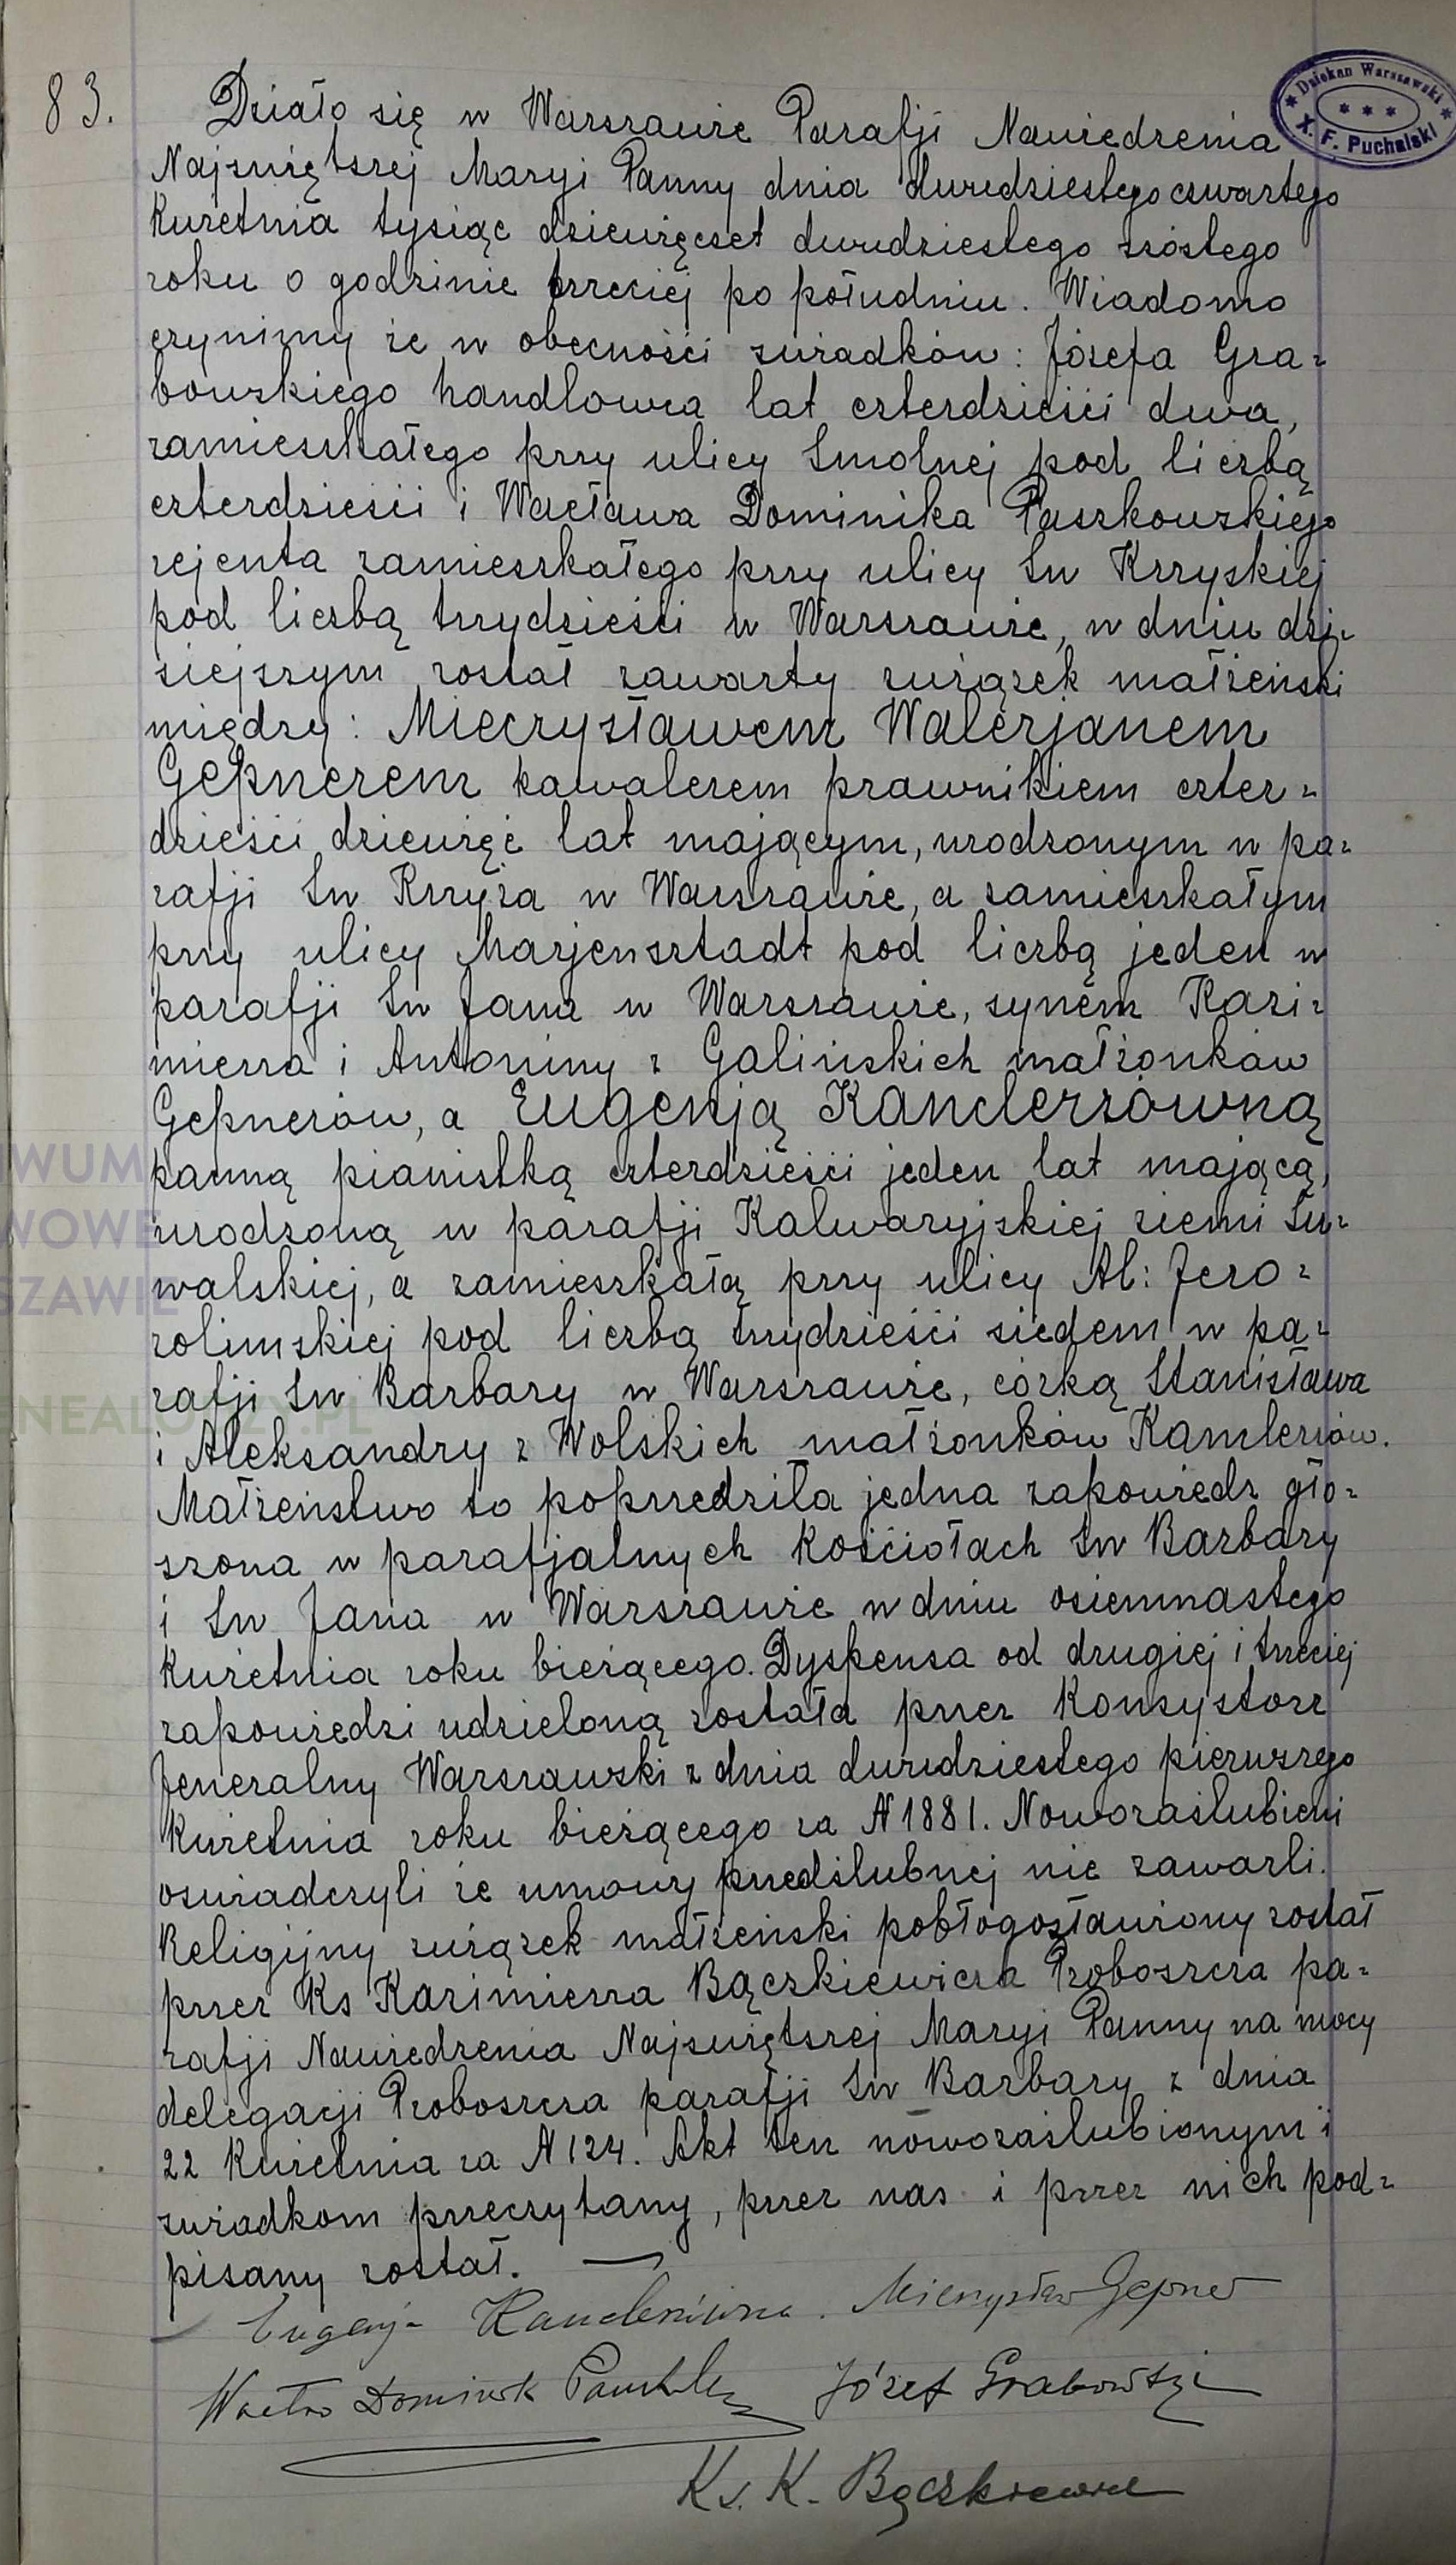 83.
Działo się w Warszawie Parafji Nawiedzenia
Najświętszej Maryi Panny dnia dwudziestego czwartego
Kwietnia tysiąc dziewięćset dwudziestego szóstego
roku o godzinie trzeciej po południu. Wiadomo
czynimy że w obecności świadków: Józefa Gra=
bowskiego handlowca lat czterdzieści dwa,
zamieszkałego przy ulicy Smolnej pod liczbą
czterdzieści i Wacława Dominika Paszkowskiego
rejenta zamieszkałego przy ulicy Św Krzyskiej
pod liczbą trzydzieści w Warszawie, w dniu dzi=
siejszym został zawarty związek małżeński
między: Mieczysławem Walerjanem
Gepnerem kawalerem prawnikiem czter=
dzieści dziewięć lat mającym, urodzonym w pa=
rafji Św Krzyża w Warszawie, a zamieszkałym
przy ulicy Marjensztadt pod liczbą jeden w
parafji Św Jana w Warszawie, synem Kazi=
mierza i Antoniny z Galińskich małżonków
Gepnerów, a Eugenją Kanclerzówną
panną pianistką czterdzieści jeden lat mającą,
urodzoną w parafji Kalwaryjskiej ziemi Su=
walskiej, a zamieszkałą przy ulicy Al: Jero=
zolimskiej pod liczbą trzydzieści siedem w pa=
rafji Św Barbary w Warszawie, córką Stanisława
i Aleksandry z Wolskich małżonków Kanclerzów.
Małżeństwo to poprzedziła jedna zapowiedź gło=
szona w parafjalnych Kościołach Św Barbary
i Św Jana w Warszawie w dniu osiemnastego
Kwietnia roku bieżącego. Dyspensa od drugiej i trzeciej
zapowiedzi udzieloną została przez Konsystorz
Jeneralny Warszawski z dnia dwudziestego pierwszego
Kwietnia roku bieżącego za N 1881. Nowozaślubieni
oświadczyli że umowy przedślubnej nie zawarli.
Religijny związek małżeński pobłogosławiony został
przez Ks Kazimierza Bączkiewicza Proboszcza pa=
rafji Nawiedzenia Najświętszej Maryi Panny na mocy
delegacji Proboszcza parafji Św Barbary z dnia
22 Kwietnia za N 124. Akt ten nowozaślubionym i
świadkom przeczytany, przez nas i przez nich pod=
pisany został. —
Eugenja Kanclerzówna. Mieczysław Gepner
Wacław Dominik Paszkowski Józef Grabowski
Ks. K. Bączkiewicz
* Dziekan Warszawski *
* * *
X. F. Puchalski
WUM
WOWE
SZAWIE
NEALODZY.PL